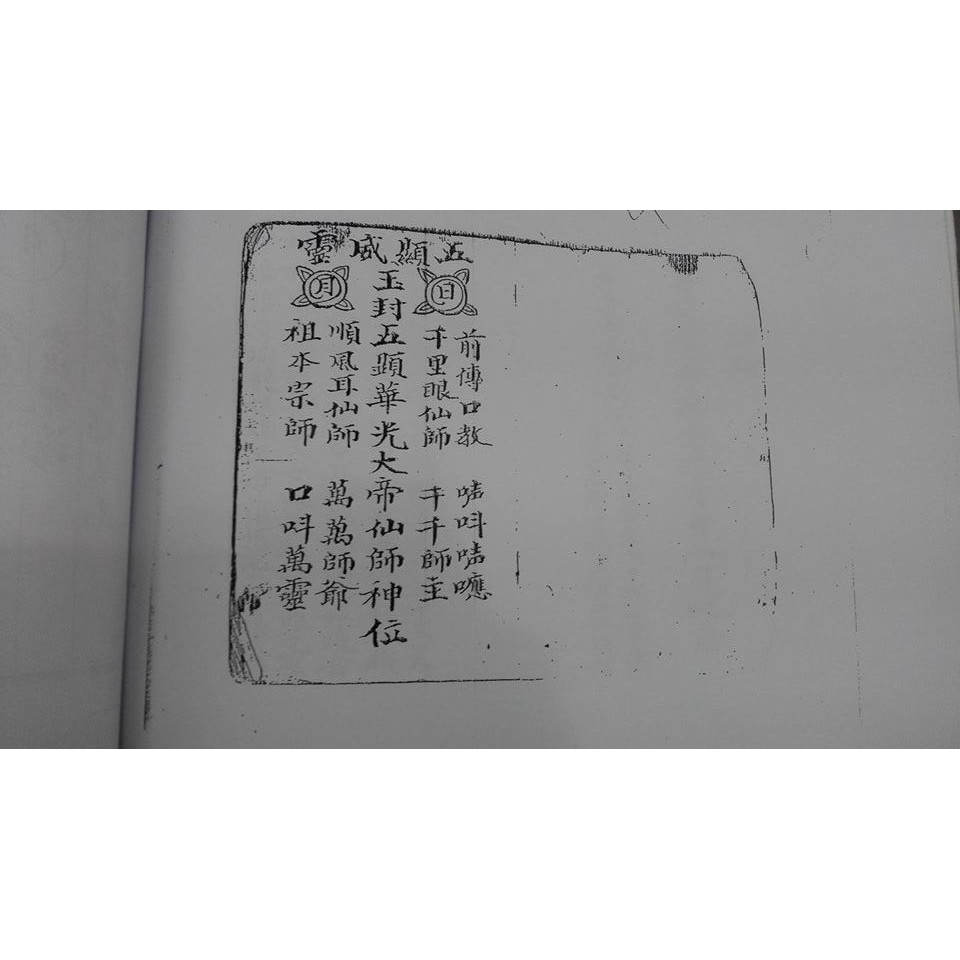 五顯威靈
日
月
前傳口教 啨呌啨噟
千里眼仙師 千千師主
玉封五顯華光大帝仙師神位
順風耳仙師 萬萬師爺
祖本宗師 口呌萬靈